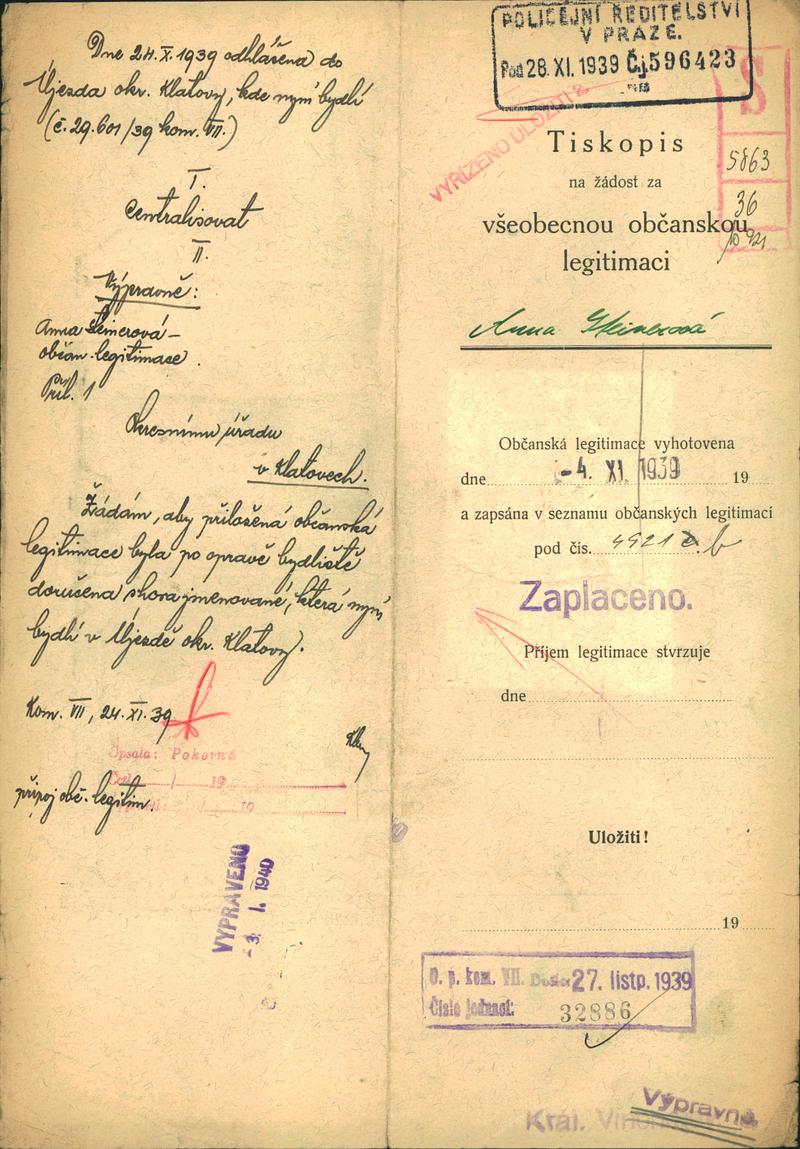 Dne 24.X.1939 odhlášena do
Újezda okr. Klatovy, kde nyní bydlí
(č. 29.601/39 kom. VII.)
I.
Centralisovat
II.
Výpravně:
Anna Steinerová -
občan. legitimace.
Příl. 1
Okresnímu úřadu
v Klatovech.
Žádám, aby přiložená občanská
legitimace byla po opravě bydliště
doručena shora jmenované, která nyní
bydlí v Újezdě okr. Klatovy.
Kom. VII, 24.XI.39
Opsala: Pokorná
19
připoj obč. legitim.
19
VYPRAVENO
-3. I. 1940
POLICEJNÍ ŘEDITELSTVÍ
V PRAZE.
Pod 28. XI. 1939 Čj. 596423
VYŘÍZENO ULOŽIT
S
5863
36
Tiskopis
na žádost za
všeobecnou občanskou
legitimaci
Anna Steinerová
Občanská legitimace vyhotovena
dne -4. XI. 1939 19
a zapsána v seznamu občanských legitimací
pod čís. 4921 b
Zaplaceno.
Příjem legitimace stvrzuje
dne
Uložiti!
19
O. p. kom. VII. Došlo: 27. listp. 1939
Číslo jednací: 32886
Výpravna
Král.